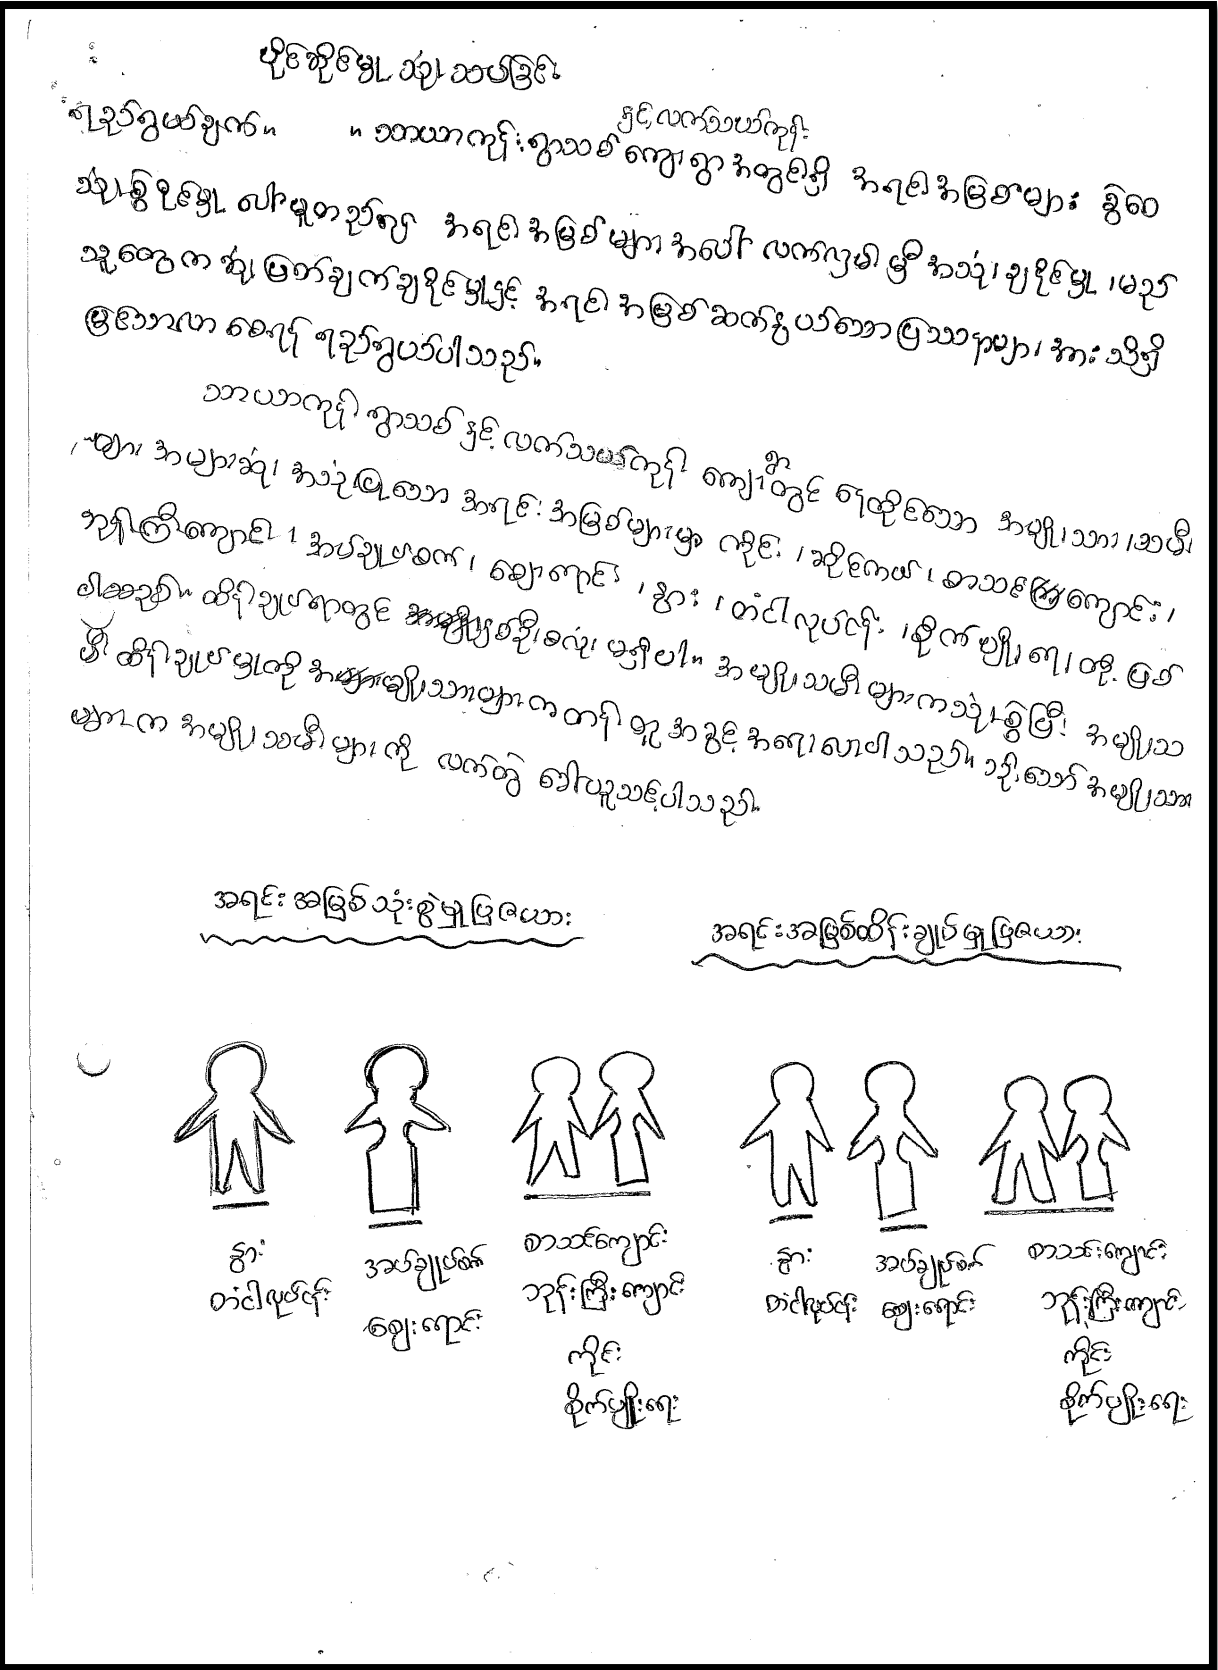 ပိုင်ဆိုင်မှု သုံးသပ်ခြင်း
ရည်ရွယ်ချက်။ ။ သာယာကုန်းရွာသစ် နှင့် လက်သယ်ကုန်း ကျေးရွာ အတွင်းရှိ အရင်းအမြစ်များ ခွဲဝေ
သုံးစွဲနိုင်မှု ပေါ်မူတည်၍ အရင်းအမြစ်များအပေါ် လက်လှမ်းမှီ အသုံးချနိုင်မှု ၊မည်
သူတွေက ဆုံးဖြတ်ချက်ချနိုင်မှုနှင့် အရင်းအမြစ်ဆက်နွယ်သော ပြဿနာများ အား သိရှိ
စေရန် ရည်ရွယ်ပါသည်။
သာယာကုန်းရွာသစ် နှင့် လက်သယ်ကုန်း ကျေးရွာတွင် နေထိုင်သော အမျိုးသား၊သမီး
များ အများဆုံး အသုံးပြုသော အရင်းအမြစ်များမှာ ကိုင်း ၊ ဆိုင်ကယ်၊ စာသင်ကျောင်း၊
ဘုန်းကြီးကျောင်း ၊ အပ်ချုပ်စက်၊ ဈေးရောင်း ၊ နွား ၊ တံငါလုပ်ငန်း ၊စိုက်ပျိုးရေးတို့ ဖြစ်
ပါသည်။ ထိန်းချုပ်ရာတွင် တစ်ဦးစလုံး မရှိပါ။ အမျိုးသမီးများကသုံးစွဲပြီး အမျိုးသ
မီး ထိန်းချုပ်မှုကို အမျိုးသားများက တန်းတူ အခွင့်အရေးပေးပါသည်။ သို့သော် အမျိုးသား
များက အမျိုးသမီးများကို လက်တွဲ ခေါ်ယူသင့်ပါသည်။
အရင်းအမြစ်သုံးစွဲမှုပြဇယား
အရင်းအမြစ်ထိန်းချုပ်မှုပြဇယား
နွား
တံငါလုပ်ငန်း
အပ်ချုပ်စက်
ဈေးရောင်း
စာသင်ကျောင်း
ဘုန်းကြီးကျောင်း
ကိုင်း
စိုက်ပျိုးရေး
နွား
တံငါလုပ်ငန်း
အပ်ချုပ်စက်
ဈေးရောင်း
စာသင်ကျောင်း
ဘုန်းကြီးကျောင်း
ကိုင်း
စိုက်ပျိုးရေး